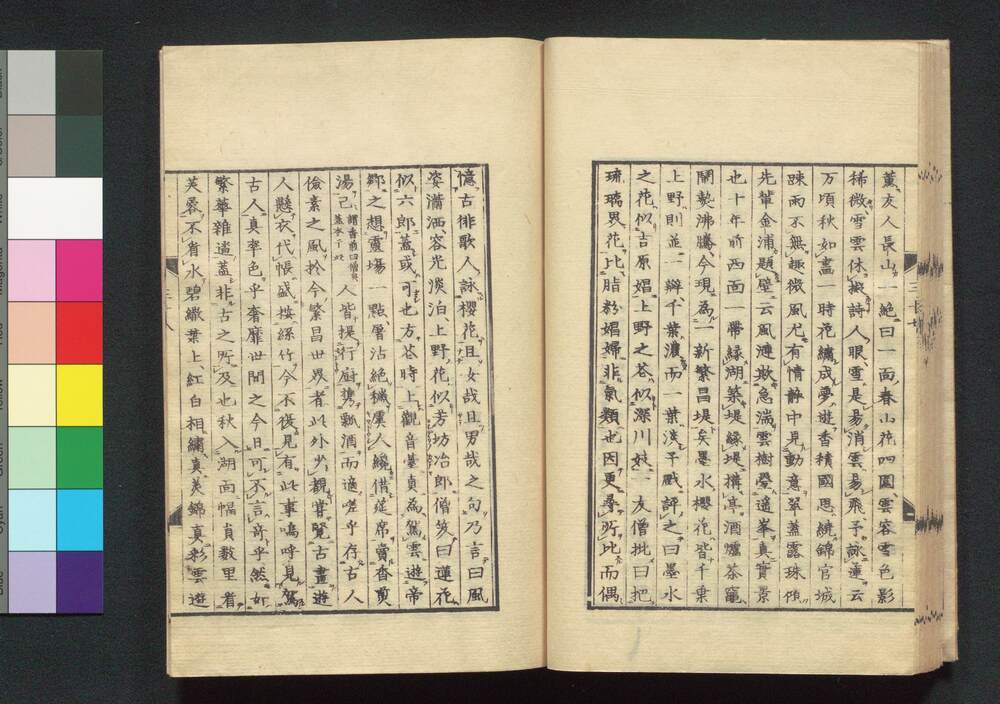 薫友人長山一絶曰一面春山花四圍雲容雪色影
稀微雪雲休擬詩人眼雪是易消雲易飛予詠蓮云
万頃秋如畫一時花繡成夢遊香積國思繞錦官城
踈雨不無趣微風尤有情静中見動意翠蓋露珠傾
先輩金浦題壁云風漣欺急湍雲樹疊遥峯真實景
也十年前西面一帶緑湖築堤縁堤構亭酒爐茶竈
鬧熱沸騰今現為一新繁昌堤矣墨水櫻花皆千葉
上野則並二辨千葉濃而一葉淡予戯評之曰墨水
之花似吉原娼上野之花似深川妓一友僧批曰把
琉璃界花比脂粉娼婦非氣類也因更尋所比而偶
憶古徘歌人詠櫻花且女哉且男哉之句乃言曰風
姿瀟洒容光淡泊上野花似芳坊冶郎僧笑曰蓮花
似六郎蓋或可也方花時上觀音臺貞為駕雲遊帝
鄉之想靈場一點屠沽絶穢虞人纔借筵席賣香煎
湯己 人皆提行廚携瓢酒而適嗟乎存古人
儉素之風於今繁昌世界者此外少觀嘗覧古畫遊
人懸衣代帳盛按絲竹今不復見有此事嗚呼見駕
古人真率色乎奢靡世間之今日可不言奇乎然如
繁華雜遝蓋非古之所及也秋入湖面幅員數里看
芙蓉不省水碧繖葉上紅白相繡真美錦真彩雲遊